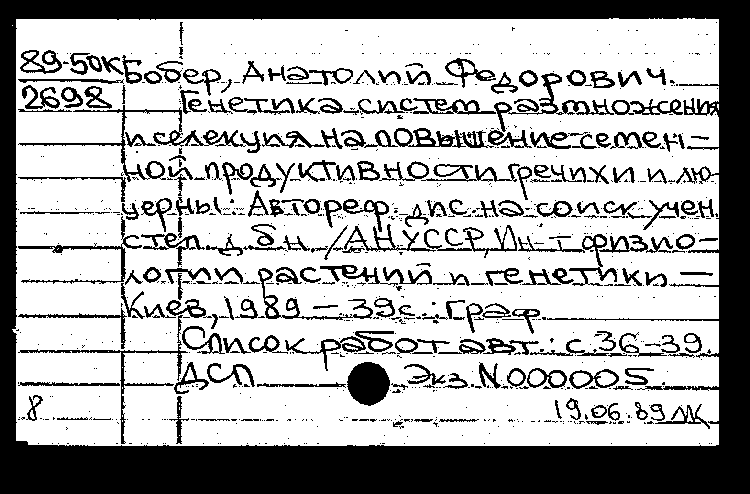 89-50к Бобер, Анатолий Федорович.
2698 Генетика систем размножения
и селекция на повышение семен-
ной продуктивности гречихи и лю-
церны: Автореф. дис. на соиск учен.
степ. д. б. н. / АН УССР, Ин-т физио-
логии растений и генетики —
Киев, 1989 — 39с.: граф
Список работ авт.: с.36-39.
ДСП Экз N000005.
8 19.06.89 ЛК